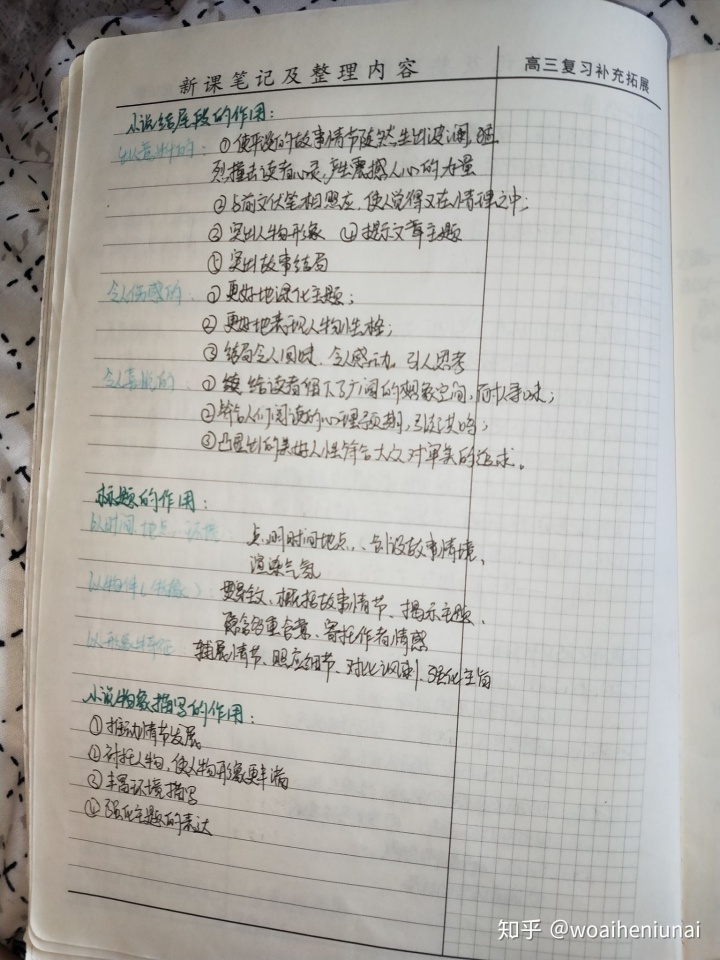 新课笔记及整理内容
高三复习补充拓展
小说结尾段的作用:
出人意料的: ①使平淡的故事情节陡然生出波澜,猛
烈撞击读者心灵,产生震撼人心的力量
②与前文伏笔相照应,使人觉得又在情理之中;
③突出人物形象 ④揭示文章主题
⑤突出故事结局
令人伤感的: ①更好地深化主题;
②更好地表现人物性格;
③结局令人回味,令人感动,引人思考
令人喜悦的: ①给读者留下了广阔的想象空间,耐人寻味;
②符合人们阅读的心理预期,引起共鸣;
③凸显出的美好人性符合大众对审美的追求。
标题的作用:
以时间 地点 环境: 点明时间地点、创设故事情境、
渲染气氛
以物件(物象) 贯穿全文、概括故事情节、揭示主题、
蕴含多重含意、寄托作者情感
铺展情节、照应细节、对比讽刺、强化主旨
小说物象描写的作用:
①推动情节发展
②衬托人物,使人物形象更丰满
③丰富环境描写
④强化主题的表达
知乎 @woaiheniunai